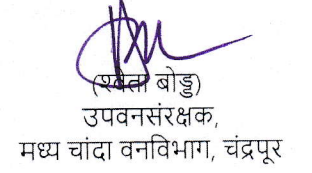 (श्वेता बोड्डु)
उपवनसंरक्षक,
मध्य चांदा वनविभाग, चंद्रपूर